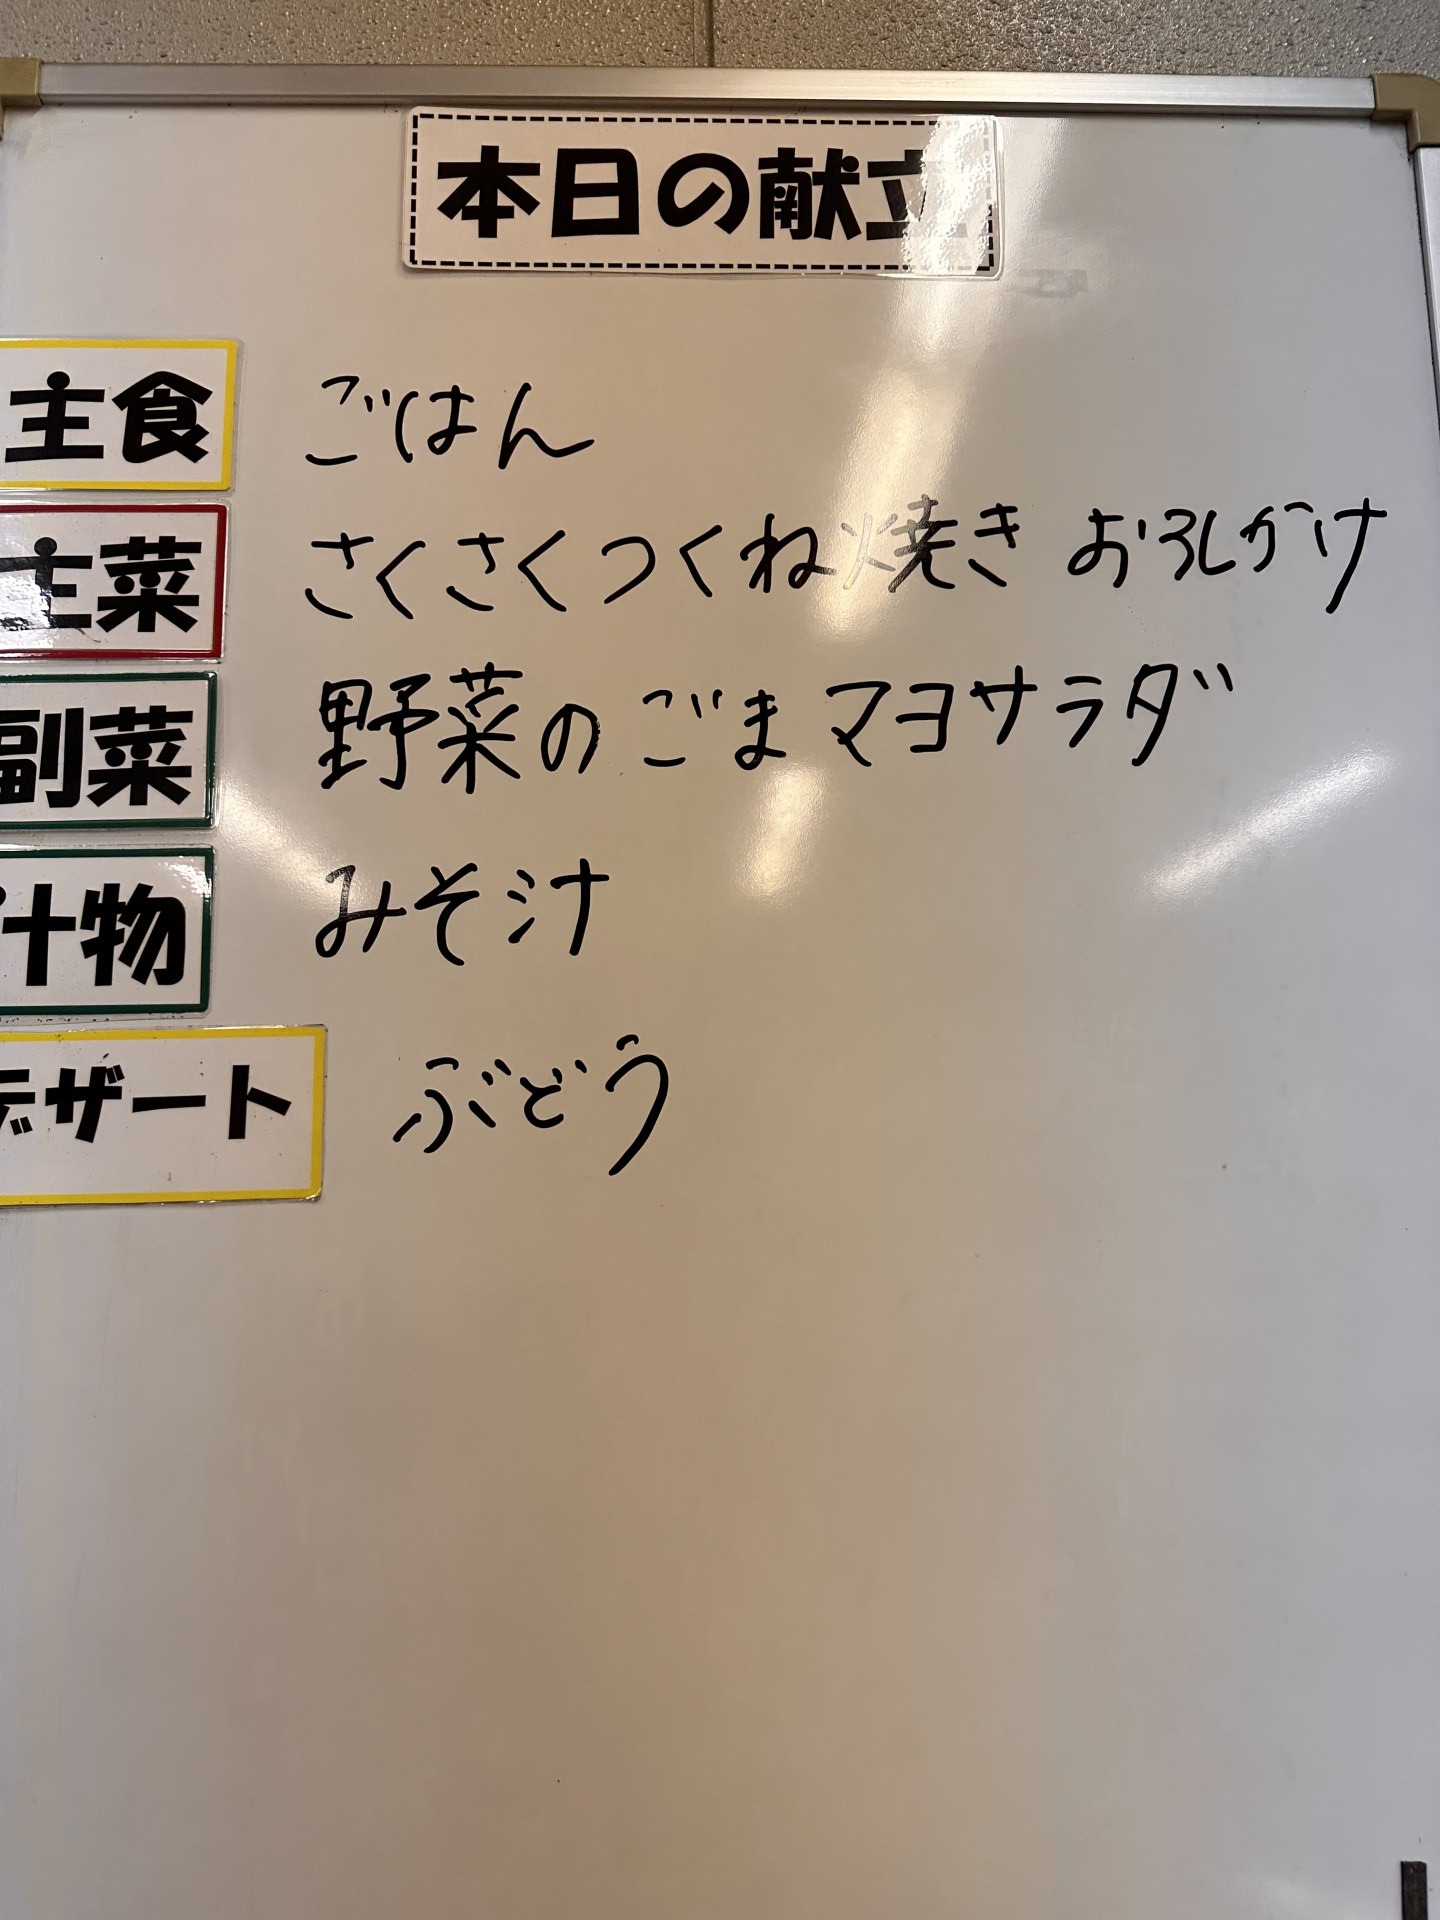 本日の献立
主食 ごはん
主菜 さくさくつくね焼き おろしかけ
副菜 野菜のごまマヨサラダ
汁物 みそ汁
デザート ぶどう